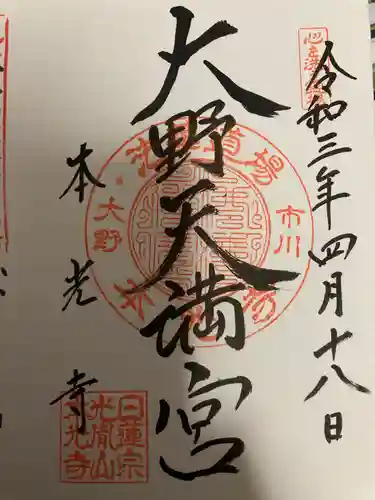 令和三年四月十八日
大野天満宮
本光寺
市川
大野
日蓮宗
光胤山
本光寺